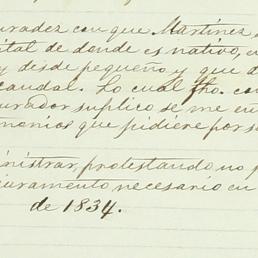 uradez con que Martinez
ital de donde es nativo,
y desde pequeño y que
caudal. Lo cual fho. con
urador suplico se me en
monios que pidiere por s
inistrar, protestando no p
juramento necesario en
de 1834.